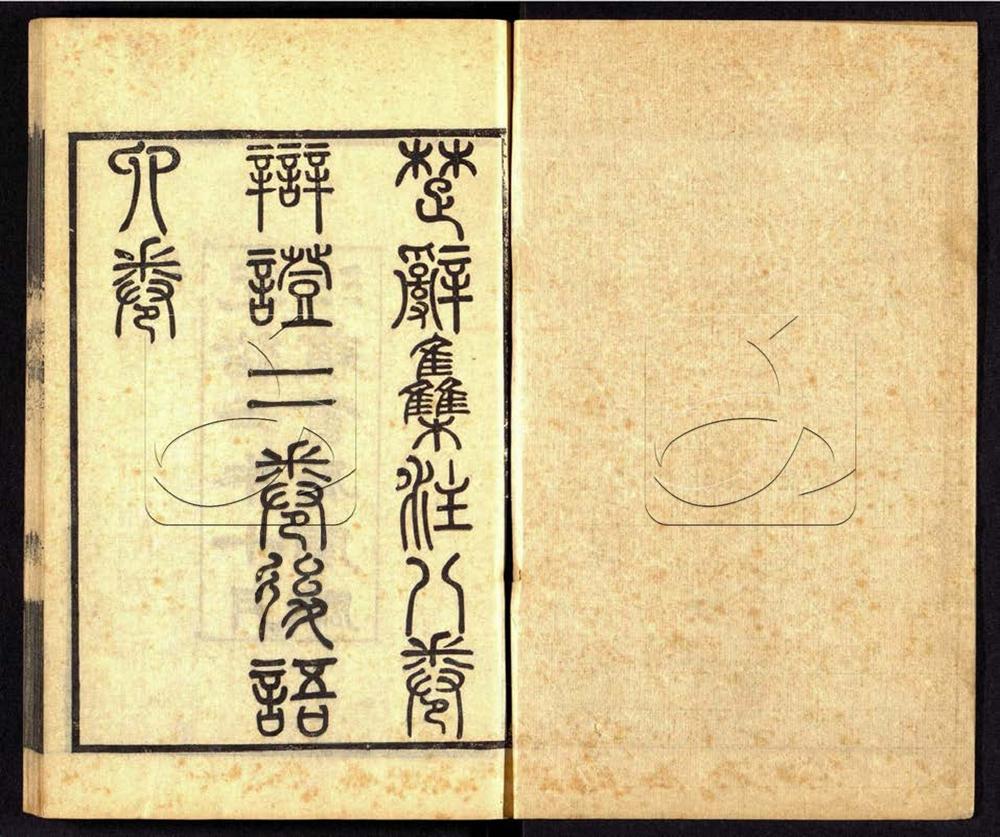 楚辭集注八卷
辯證二卷後語
六卷